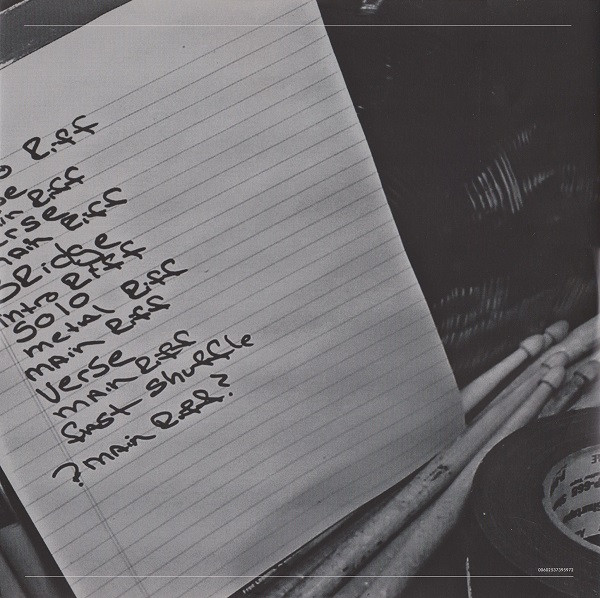 o Riff
se
in Riff
erse
main Riff
BRidge
intro Riff
Solo
metal Riff
main Riff
Verse
main Riff
fast shuffle
? main Riff?
00602537395972